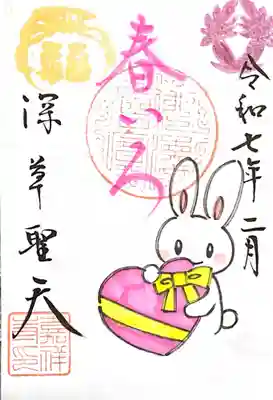 令和七年二月
春いろ
深草聖天